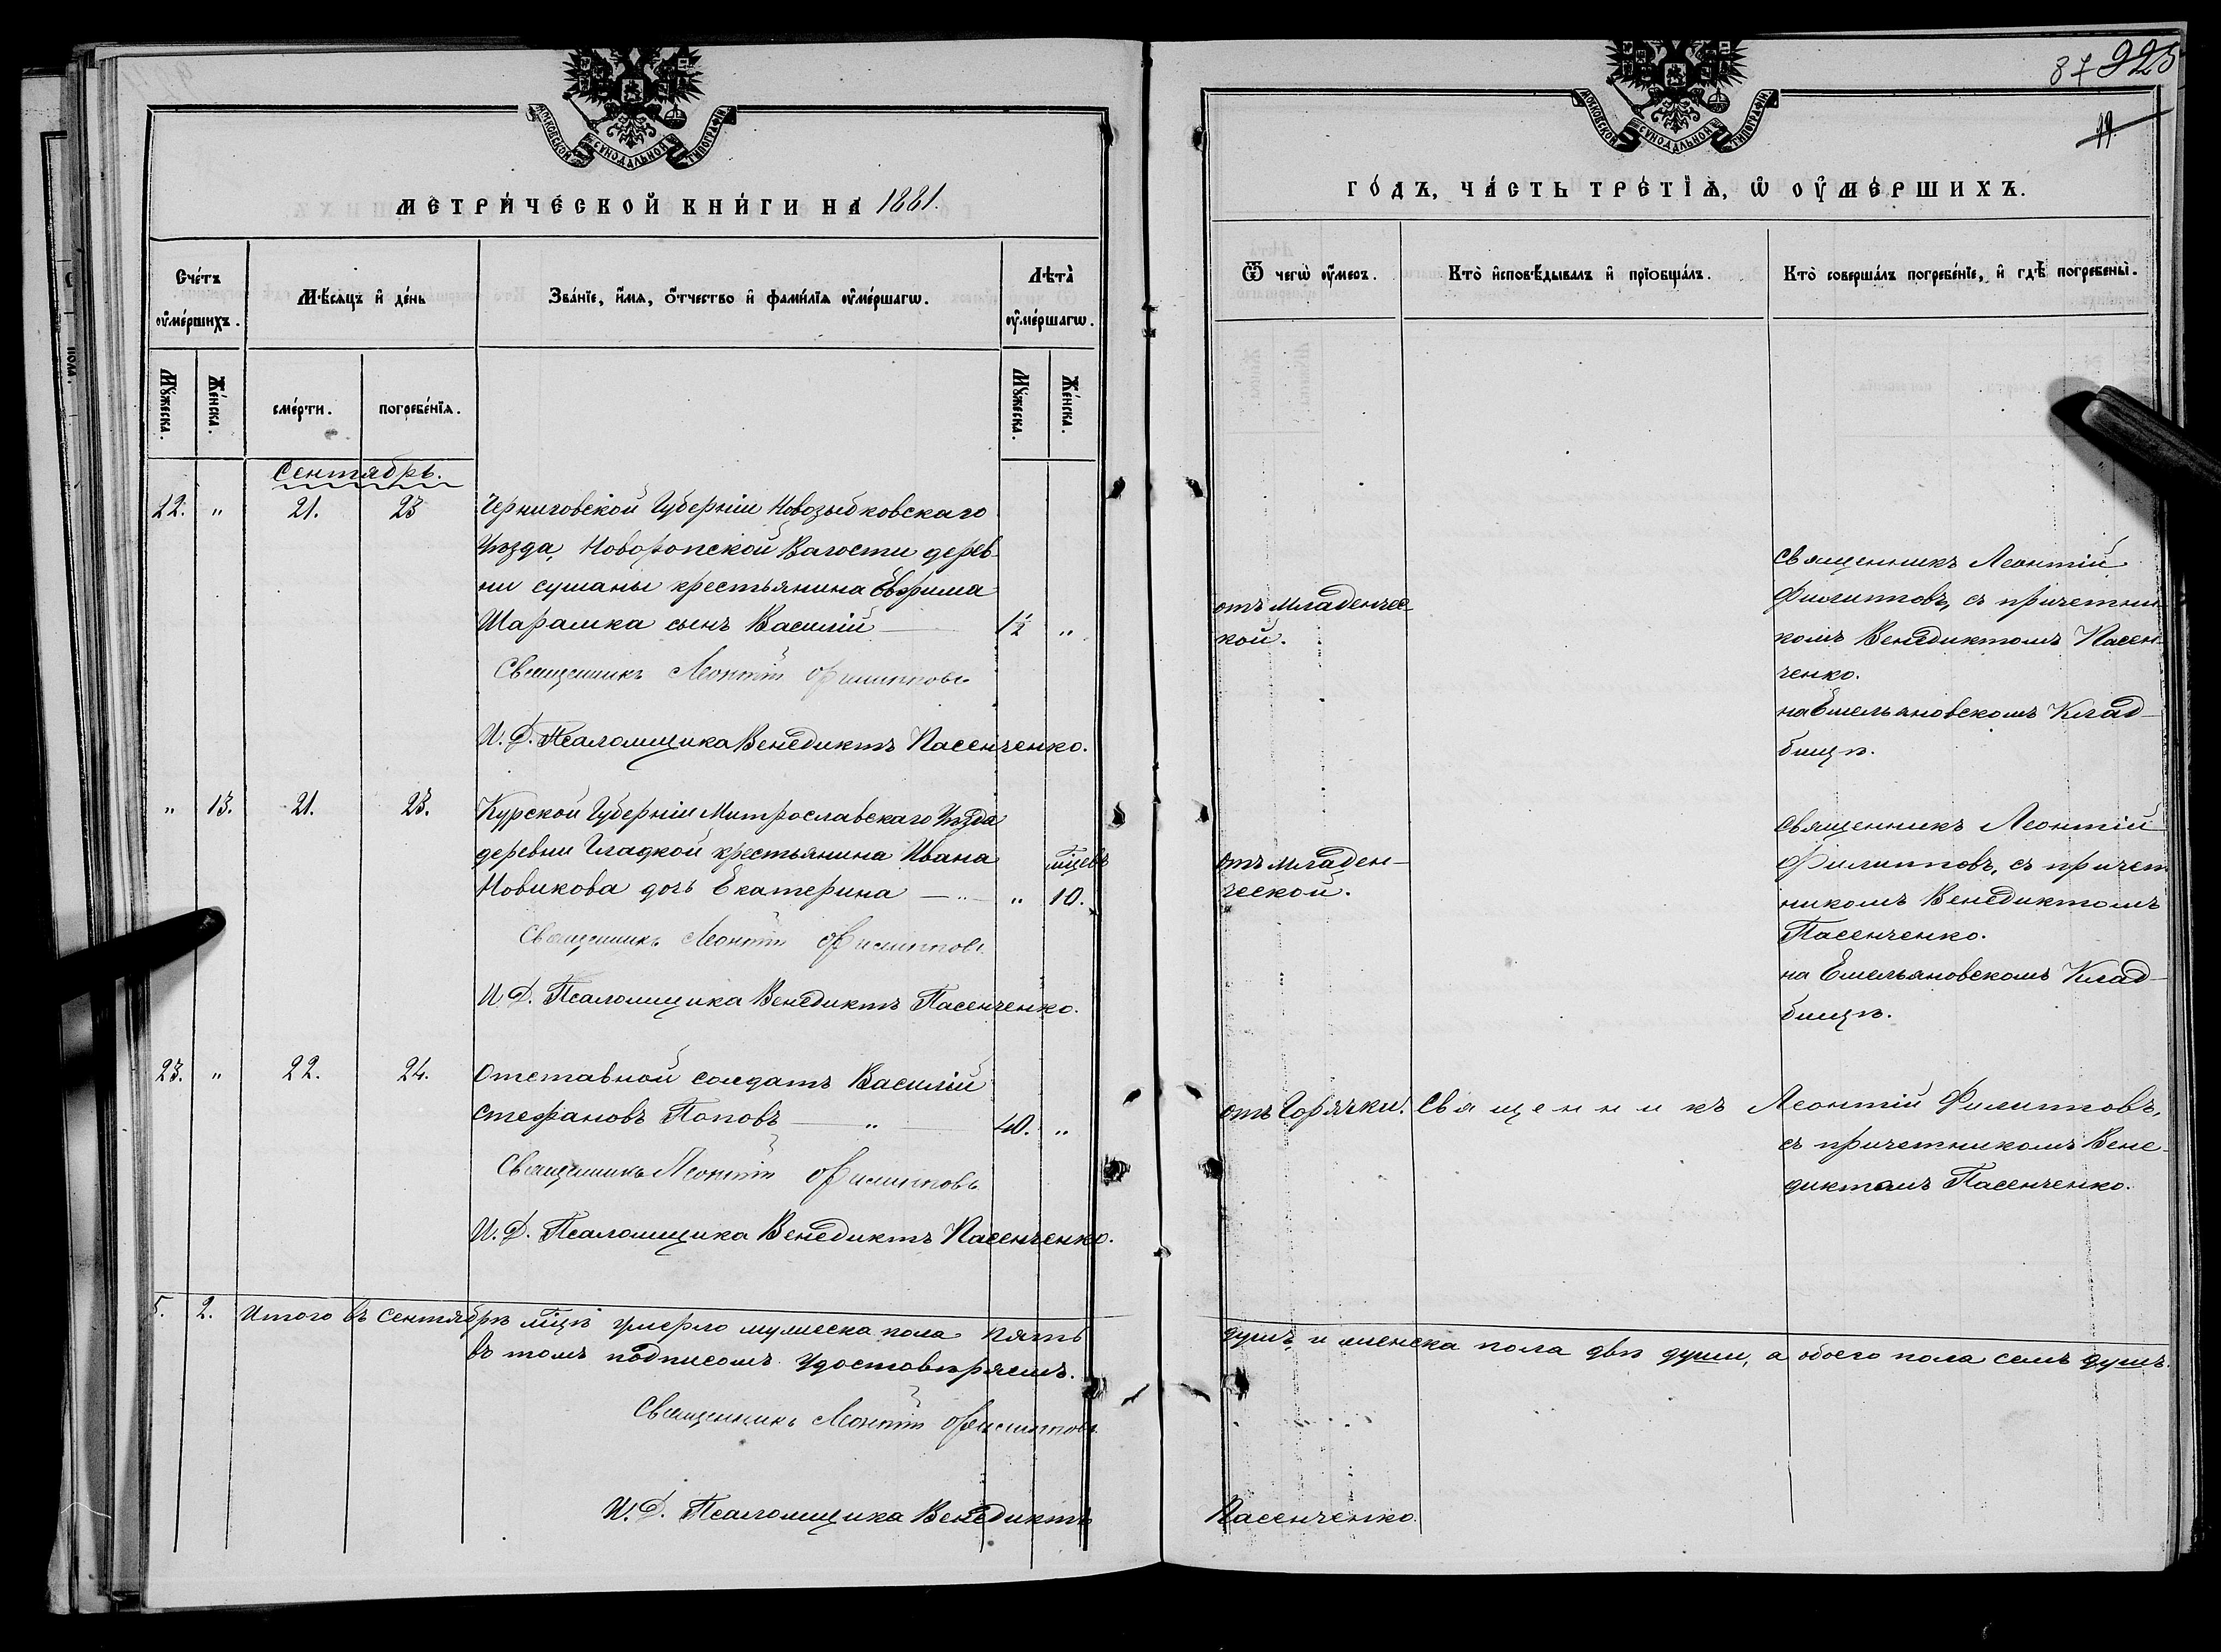 МОСКОВСКОЙ СѴНОДАЛЬНОЙ ТИПОГРАФІИ
МЕТРИ́ЧЕСКОЙ КНИ́ГИ НА 1881.
Сче́тъ ᲂу҆ме́ршихъ.
Мѣ́сяцъ и҆ де́нь
Зва́нїе, и҆́мѧ, ѻ҆́тчество и҆ фами́лїѧ ᲂу҆ме́ршагѡ.
Лѣта̀ ᲂу҆ме́ршагѡ.
Мꙋ́жеска.
Же́нска.
сме́рти.
погребе́нїѧ.
Мꙋ́жеска.
Же́нска.
Сентябрь.
22. " 21. 23 Черниговской Губерніи Новозыбковскаго
Уѣзда, Новоропской Волости дерев-
ни сушаны крестьянина Ефрима
Шарамка сынъ Василій — 1½ "
Священникъ Леонтій Филипповъ
И. Д. Псаломщика Венедиктъ Пасенченко.
" 13. 21. 23. Курской Губерніи Митрославскаго Уѣзда
деревни Гладкой крестьянина Ивана мцевъ
Новикова дочь Екатерина — " — " 10.
Священникъ Леонтій Филипповъ
И. Д. Псаломщика Венедиктъ Пасенченко.
23. " 22. 24. Отставной солдатъ Василій
Стефановъ Поповъ — " — 40. "
Священникъ Леонтій Филипповъ
И. Д. Псаломщика Венедиктъ Пасенченко.
5. 2. Итого въ Сентябрѣ мцѣ умерло мужеска пола пять
въ томъ подписомъ удостовѣряемъ.
Священникъ Леонтій Филипповъ
И. Д. Псаломщика Венедиктъ
87 925
99
МОСКОВСКОЙ СѴНОДАЛЬНОЙ ТИПОГРАФІИ
ГО́ДЪ, ЧА́СТЬ ТРЕ́ТЇѦ, Ѡ҆ ОУ҆МЕ́РШИХЪ.
Ѿ чегѡ̀ ᲂу҆́меръ.
Кто̀ и҆сповѣ́дывалъ и҆ прїобща́лъ.
Кто̀ соверша́лъ погребе́нїе, и҆ гдѣ̀ погребены̀.
отъ младенчес-
кой.
Священникъ Леонтій
Филипповъ, съ причетни-
комъ Венедиктомъ Пасен-
ченко.
на Емельяновскомъ Клад-
бищѣ.
отъ младен-
ческой.
Священникъ Леонтій
Филипповъ, съ причет-
никомъ Венедиктомъ
Пасенченко.
на Емельяновскомъ Клад-
бищѣ.
отъ Горячки. Священникъ Леонтій Филипповъ,
съ причетникомъ Вене-
диктомъ Пасенченко.
душъ, и женска пола двѣ души, а обоего пола семь душъ.
Пасенченко.